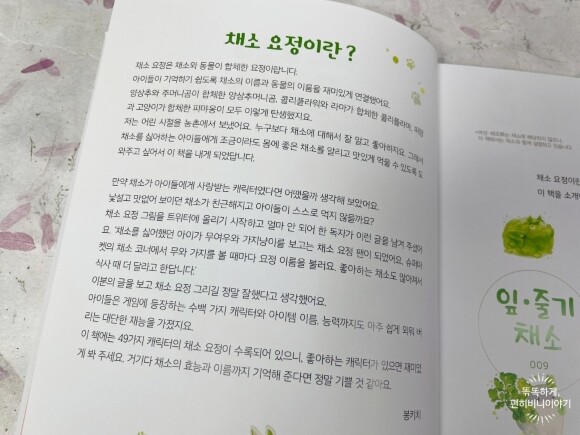 채소 요정이란?
채소 요정은 채소와 동물이 합체한 요정이랍니다.
아이들이 기억하기 쉽도록 채소의 이름과 동물의 이름을 재미있게 연결했어요.
양상추와 주머니곰이 합체한 양상추머니곰, 콜리플라워와 라마가 합체한 콜리플라마, 피망
과 고양이가 합체한 피먀옹이 모두 이렇게 탄생했지요.
저는 어린 시절을 농촌에서 보냈어요. 누구보다 채소에 대해서 잘 알고 좋아하지요. 그래서
채소를 싫어하는 아이들에게 조금이라도 몸에 좋은 채소를 알리고 맛있게 먹을 수 있도록 도
와주고 싶어서 이 책을 내게 되었답니다.
만약 채소가 아이들에게 사랑받는 캐릭터였다면 어땠을까 생각해 보았어요.
낯설고 맛없어 보이던 채소가 친근해지고 아이들이 스스로 먹지 않을까요?
채소 요정 그림을 트위터에 올리기 시작하고 얼마 안 되어 한 독자가 이런 글을 남겨 주셨어
요. '채소를 싫어했던 아이가 무여우와 가지냥이를 보고는 채소 요정 팬이 되었어요. 슈퍼마
켓의 채소 코너에서 무와 가지를 볼 때마다 요정 이름을 불러요. 좋아하는 채소도 많아져서
식사 때 더 달라고 한답니다.'
이분의 글을 보고 채소 요정 그리길 정말 잘했다고 생각했어요.
아이들은 게임에 등장하는 수백 가지 캐릭터와 아이템 이름, 능력까지도 아주 쉽게 외워 버
리는 대단한 재능을 가졌지요.
이 책에는 49가지 캐릭터의 채소 요정이 수록되어 있으니, 좋아하는 캐릭터가 있으면 재미있
게 봐 주세요. 거기다 채소의 효능과 이름까지 기억해 준다면 정말 기쁠 것 같아요.
봉키치
채소 요정이란
이 책을 소개
잎·줄기
채소
009
똑똑하게,
편히비니이야기